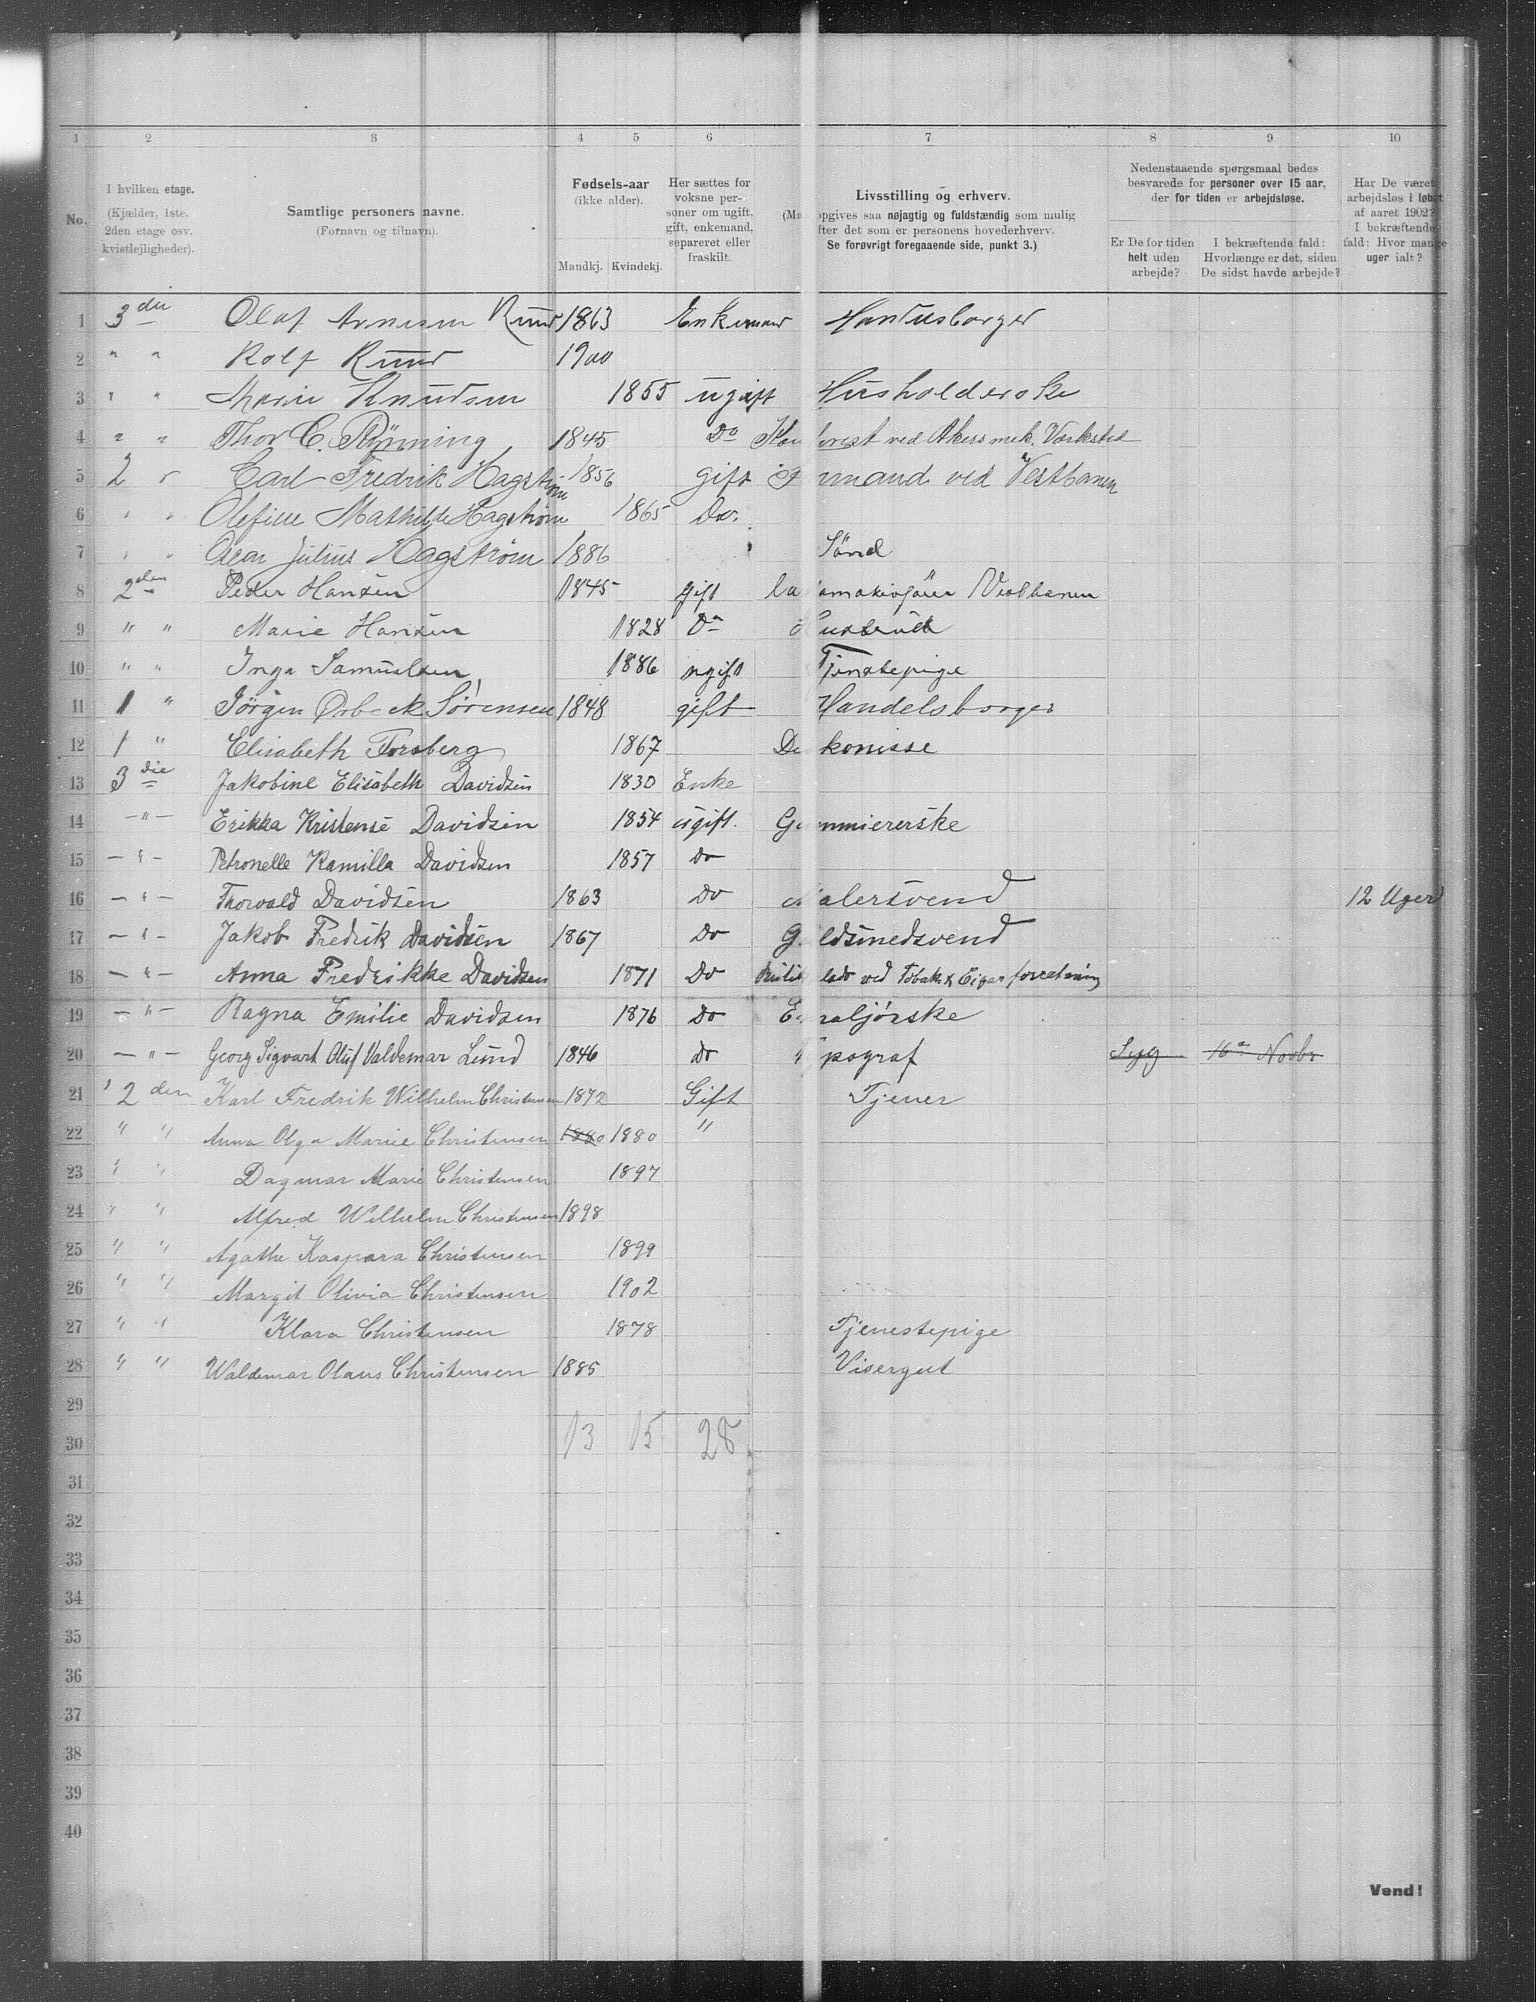 1 2 3 4 5 6 7 8 9 10
No.
I hvilken etage.
(Kjælder, 1ste.
2den etage osv.
kvistlejligheder).
Samtlige personers navne.
(Fornavn og tilnavn).
Fødsels-aar
(ikke alder).
Mandkj. Kvindekj.
Her sættes for
voksne per-
soner om ugift,
gift, enkemand,
separeret eller
fraskilt.
Livsstilling og erhverv.
opgives saa nøjagtig og fuldstændig som mulig
fter det som er personens hovederhverv.
Se forøvrigt foregaaende side, punkt 3.)
Nedenstaaende spørgsmaal bedes
besvarede for personer over 15 aar,
der for tiden er arbejdsløse.
Er De for tiden
helt uden
arbejde?
I bekræftende fald:
Hvorlænge er det, siden
De sidst havde arbejde?
Har De været
arbejdsløs i løbet
af aaret 1902?
I bekræftende
fald: Hvor mange
uger ialt?
1 3die Olaf Arnesen Ruud 1863 Enkemand Handelsborger
2 " " Rolf Ruud 1900
3 " " Marie Knudsen 1855 ugift Husholderske
4 " " Thor C. Rynning 1845 Do ved Akers mek. Værksted
5 2 " Carl Fredrik Hagstrøm 1856 gift Formand ved Vestbanen
6 " " Mathilde Hagstrøm 1865 Do.
7 " " Julius Hagstrøm 1886
8 2den Peder Hansen 1845 gift Vestbanen
9 " " Marie Hansen 1828 Do
10 " " Inga Samuelsen 1886 ugift Tjenstepige
11 1 " Jørgen Ørbeck Sørensen 1848 gift Handelsborger
12 1 " Elisabeth Forsberg 1867 De konisse
13 3die Jakobine Elisabeth Davidsen 1830 Enke
14 —"— Erikka Kristense Davidsen 1854 ugift. G mmiererske
15 —"— Petronelle Kamilla Davidsen 1857 Do
16 —"— Thorvald Davidsen 1863 Do Malersvend 12 Uger
17 —"— Jakob Fredrik Davidsen 1867 Do G ldsmedsvend
18 —"— Anna Fredrikke Davidsen 1871 Do ved Tobak & Cigar forretning
19 —"— Ragna Emilie Davidsen 1876 Do E aljørske
20 —"— Georg Sigvart Oluf Valdemar Lund 1846 Do pograf Syg 16de Novbr
21 2den Karl Fredrik Wilhelm Christensen 1872 Gift Tjener
22 " " Anna Olga Marie Christensen 1880 1880 "
23 " " Dagmar Marie Christensen 1897
24 " " Alfred Wilhelm Christensen 1898
25 " " Agathe Kaspara Christensen 1899
26 " " Margit Olivia Christensen 1902
27 " " Klara Christensen 1878 Tjenestepige
28 " " Waldemar Olaus Christensen 1885 Visergut
29
30 13 15 28
31
32
33
34
35
36
37
38
39
40
Vend!